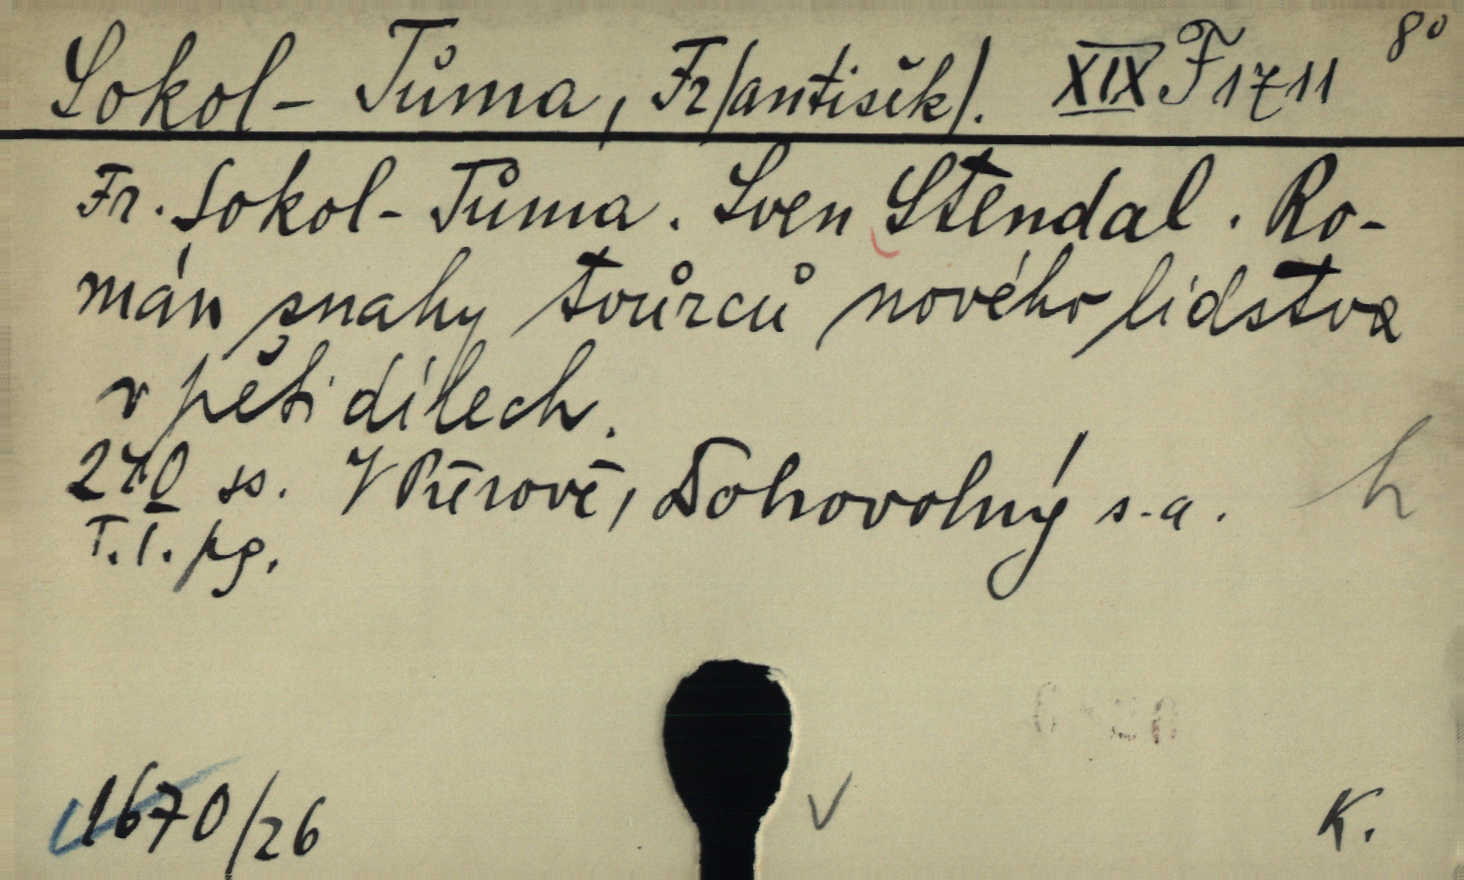 Sokol-Tůma, Fr/antišek/. XIX F 1711 8°
Fr. Sokol-Tůma. Sven Stendal. Ro-
mán snahy tvůrců nového lidstva
v pěti dílech.
270 ss. V Přerově, Dohovolný s.a. h
T.I. pg.
1670/26 K.